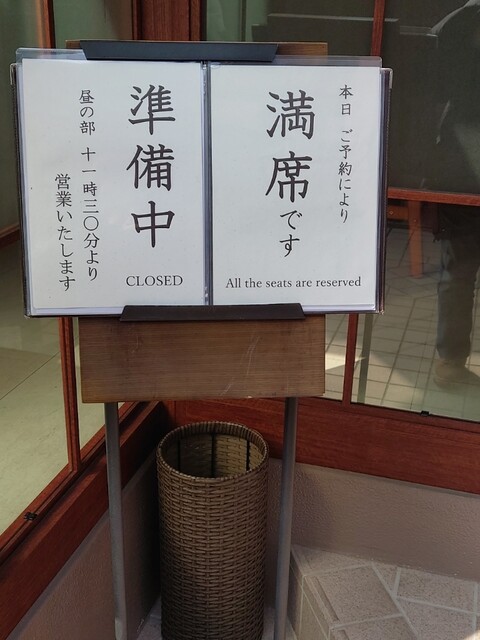 本日 ご予約により
満席です
All the seats are reserved
準備中
CLOSED
昼の部 十一時三〇分より
営業いたします